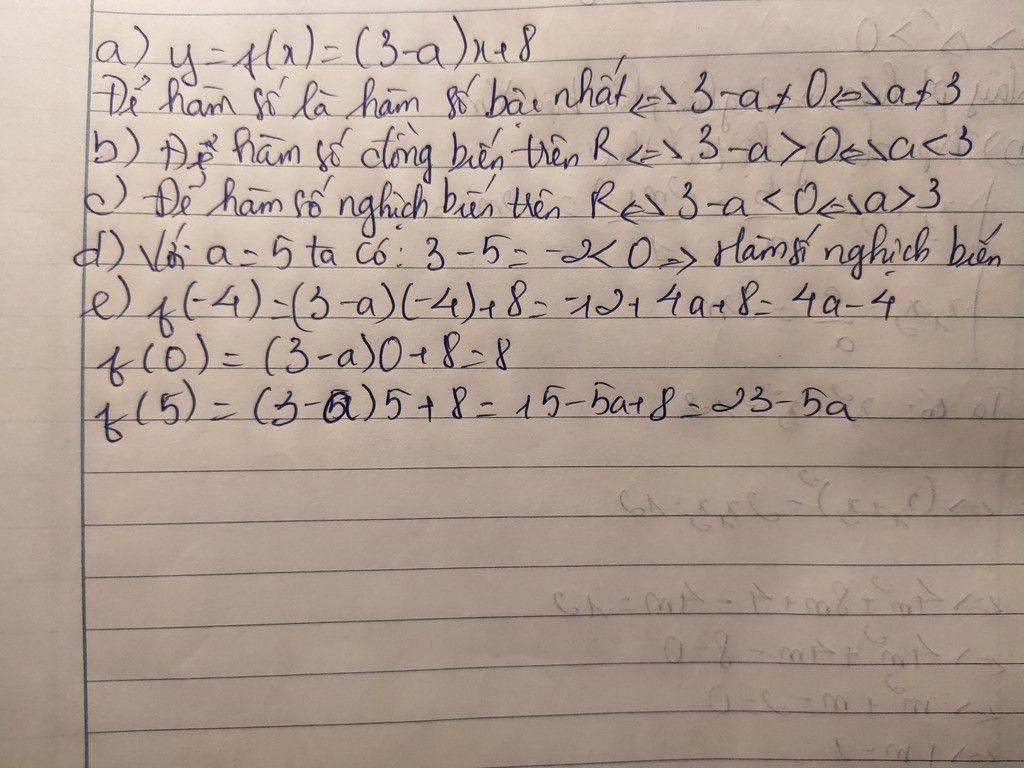 a) y = f(x) = (3-a)x+8
Để hàm số là hàm số bậc nhất <=> 3-a ≠ 0 <=> a ≠ 3
b) Để hàm số đồng biến trên R <=> 3-a > 0 <=> a < 3
c) Để hàm số nghịch biến trên R <=> 3-a < 0 <=> a > 3
d) Với a = 5 ta có: 3 - 5 = -2 < 0 => Hàm số nghịch biến
e) f(-4) = (3-a)(-4)+8 = -12 + 4a+8 = 4a - 4
f(0) = (3-a)0+8 = 8
f(5) = (3-a)5+8 = 15-5a+8 = 23-5a